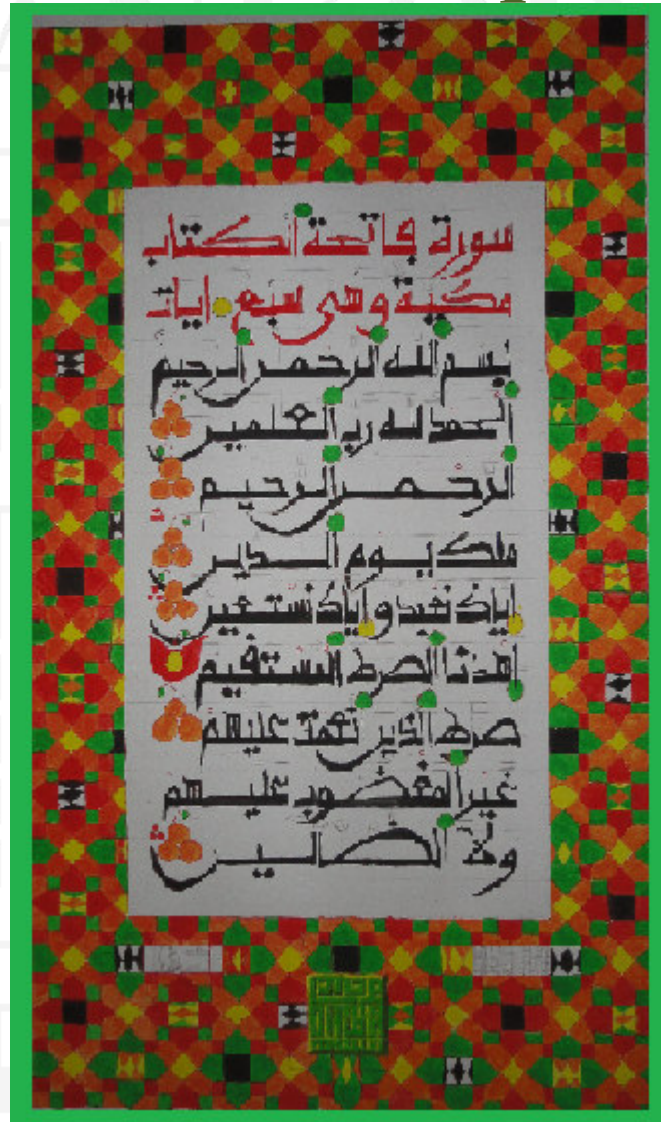 سورة فاتحة الكتاب
مكية وهي سبع ايات
بسم الله الرحمن الرحيم
الحمد لله رب العلمين
الرحمن الرحيم
ملك يوم الدين
اياك نعبد واياك نستعين
اهدنا الصرط المستقيم
صرط الذين انعمت عليهم
غير المغضوب عليهم
ولا الضالين